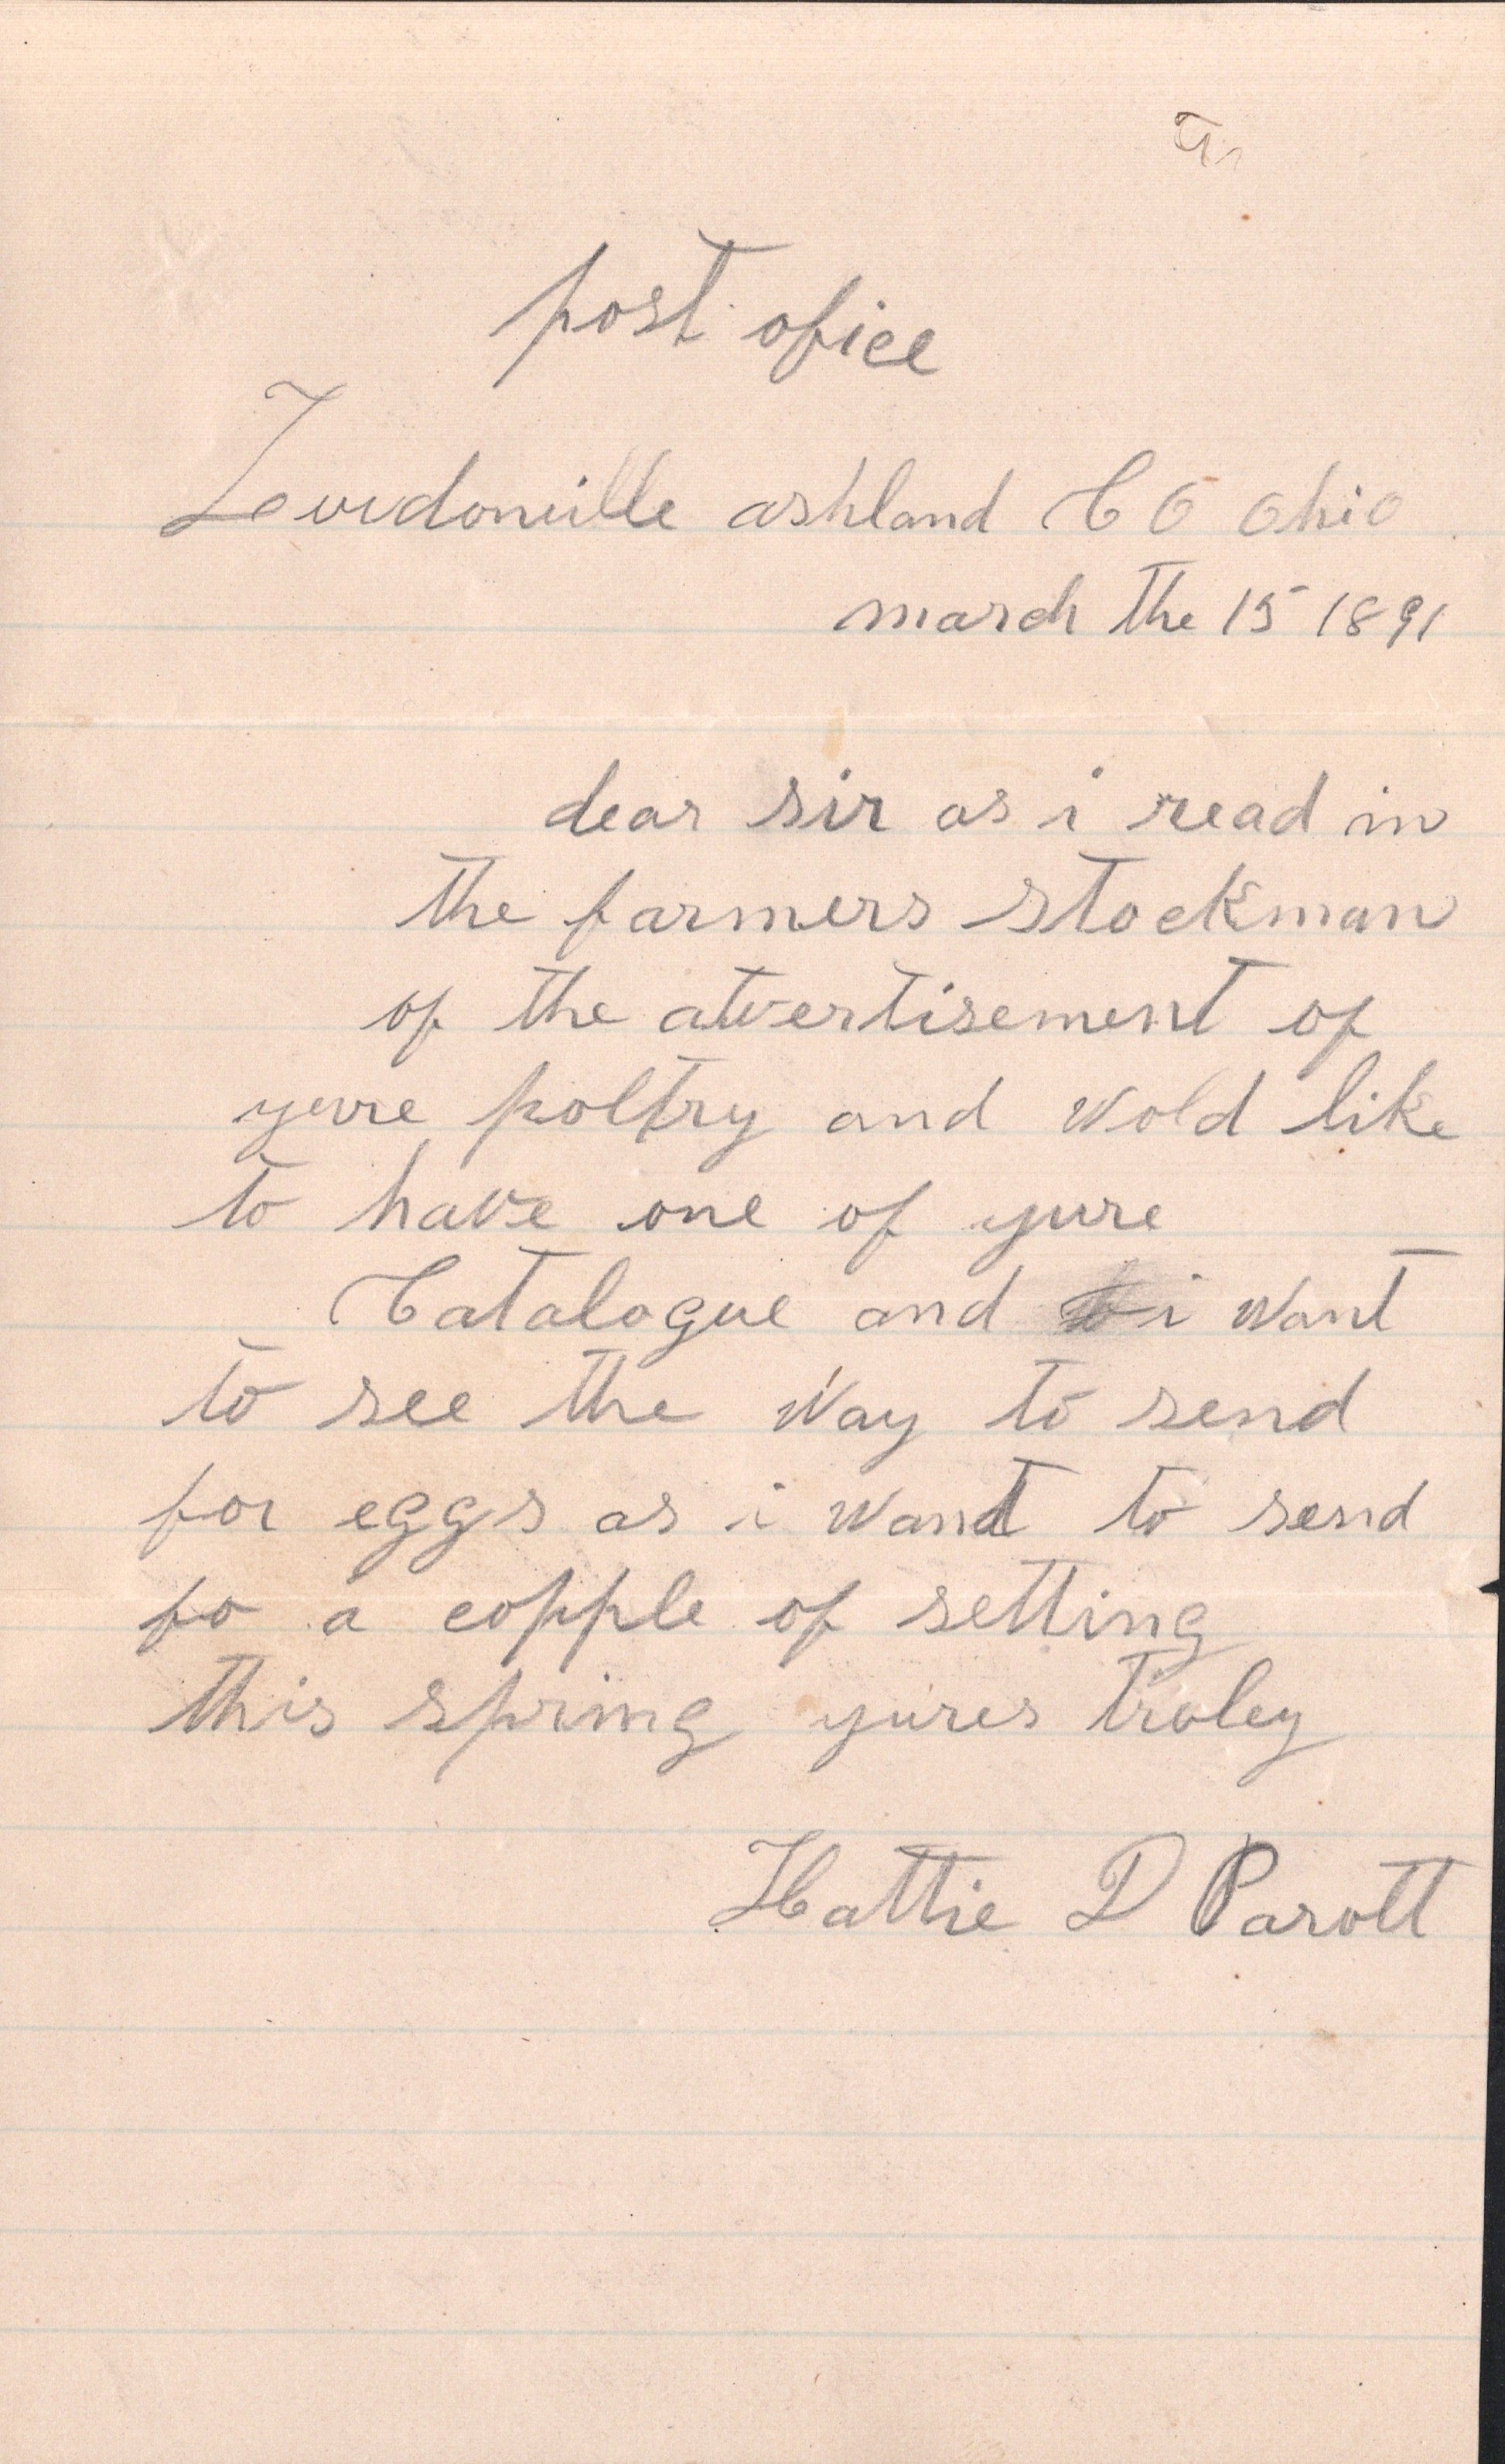 post ofice
Loudonville ashland CO Ohio
march the 15 1891
dear sir as i read in
the farmers stockman
of the atvertisement of
yure poltry and wold like
to have one of yure
Catalogue and i want
to see the way to send
for eggs as i want to send
fo a copple of setting
this spring yures troley
Hattie D Parott